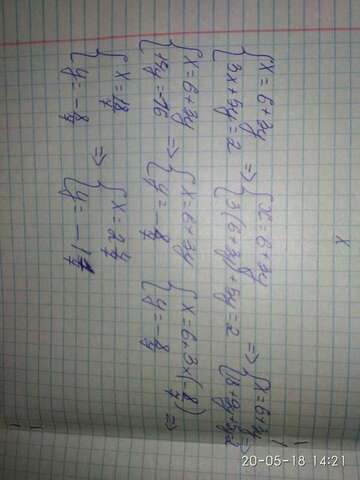 {x = 6+3y
{3x+5y = 2 => {x = 6+3y
{3(6+3y)+5y = 2 => {x = 6+3y
{18+9y+5y=2
{x = 6+3y => {x = 6+3y
{y = -8/7 {x = 6+3×(-8/7) =>
{y = -8/7
{x = 18/7 => {x = 2 4/7
{y = -8/7
20-05-18 14:21